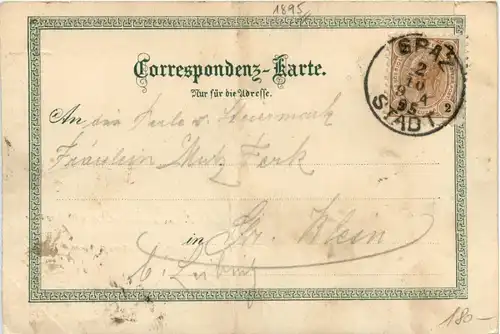 1895
Correspondenz-Karte.
Nur für die Adresse.
GRAZ
2
10
9 A
95
STADT
2
An die Perle v. Steiermark
Fräulein Mutz Ferk
in Gr. Klein
b. Leibnitz
180-